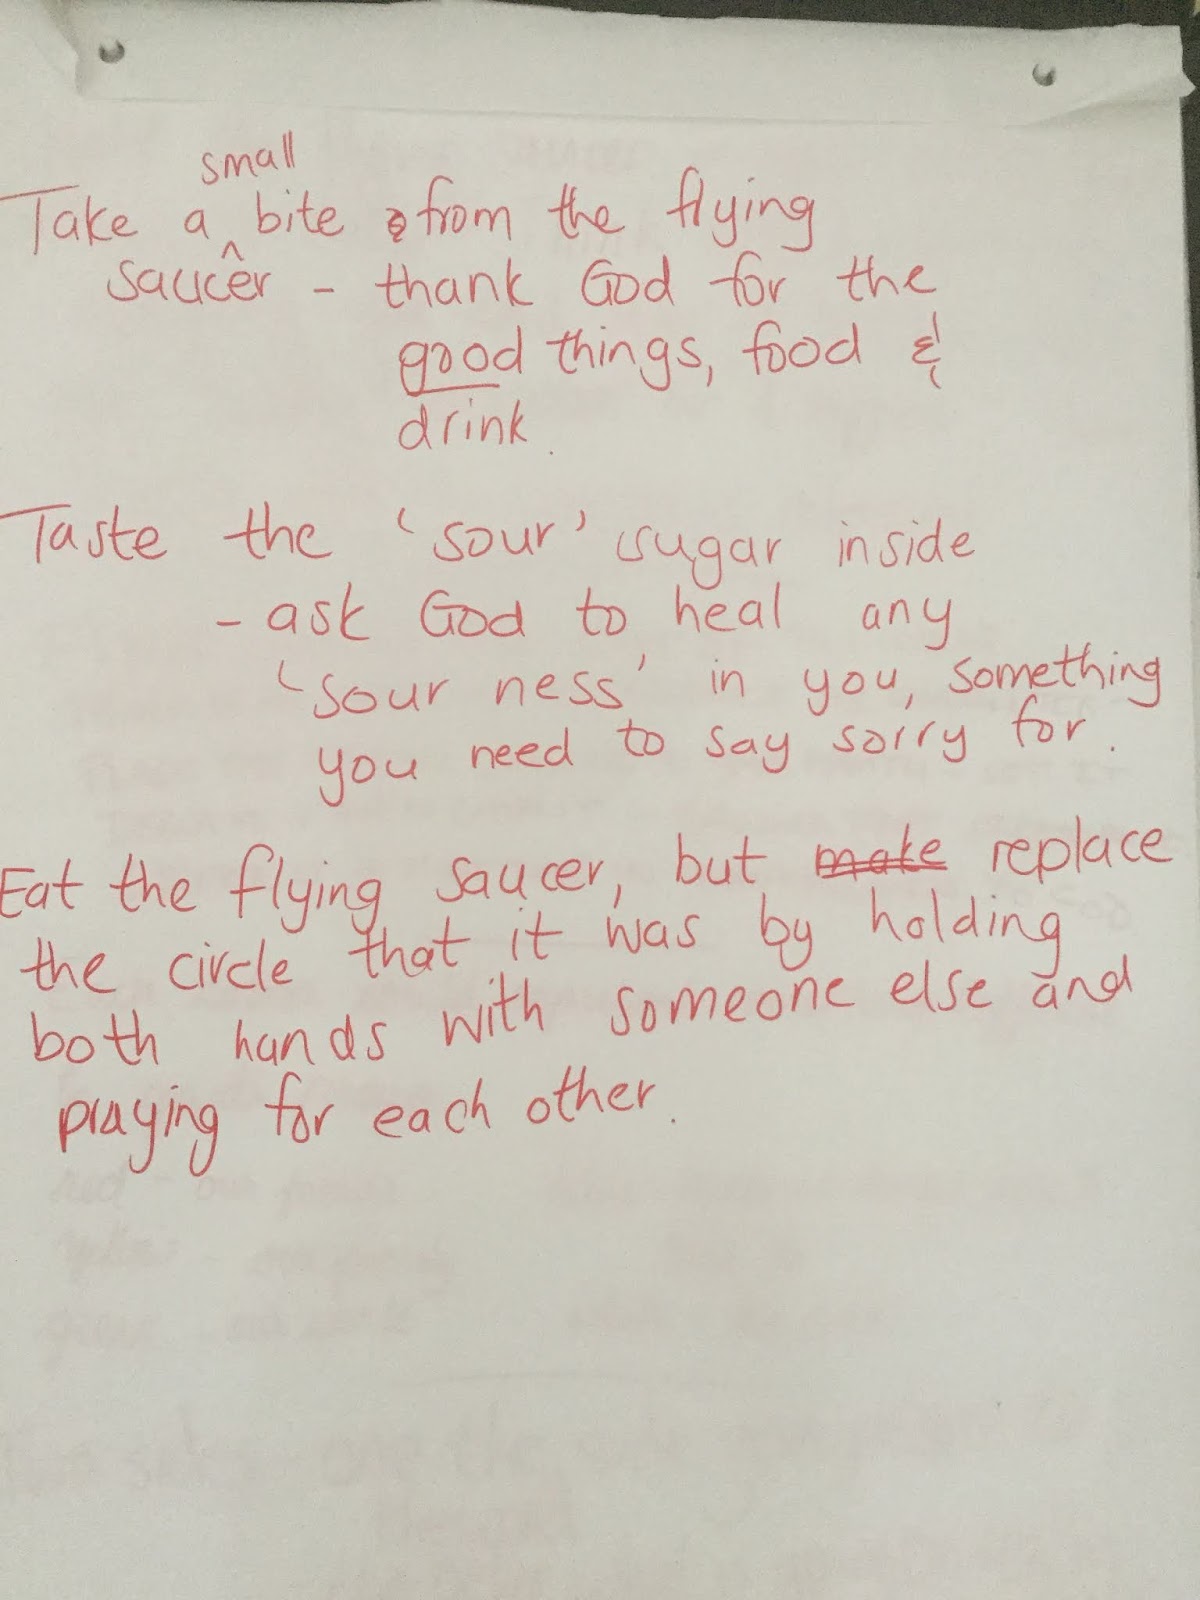 small
Take a ^ bite from the flying
saucer - thank God for the
good things, food &
drink.
Taste the 'sour' sugar inside
- ask God to heal any
'sour ness' in you, something
you need to say sorry for.
Eat the flying saucer, but make replace
the circle that it was by holding
both hands with someone else and
praying for each other.